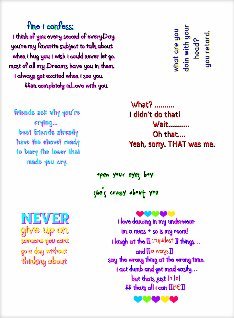 fine i confess:
i think of you every second of everyday
you're my favorite subject to talk about
when i hug you i wish i could never let go.
most of all my Dreams have you in them.
i always get excited when i see you.
completely inLove with you.
what are you
doin with your
head?
you retard.
friends ask why you're
crying...
best friends already
have the shovel ready
to bury the loser that
made you cry.
What? ..........
I didn't do that!
Wait..........
Oh that....
Yeah, sorry. THAT was me.
open your eyes boy
she's crazy about you
NEVER
give up on
someone you cant
go a day without
thinking about
i love dancing in my underwear
im a mess + so is my room!
i laugh at the things...
and
say the wrong thing at the wrong time.
i act dumb and get mad easily...
but thats just
thats all i can